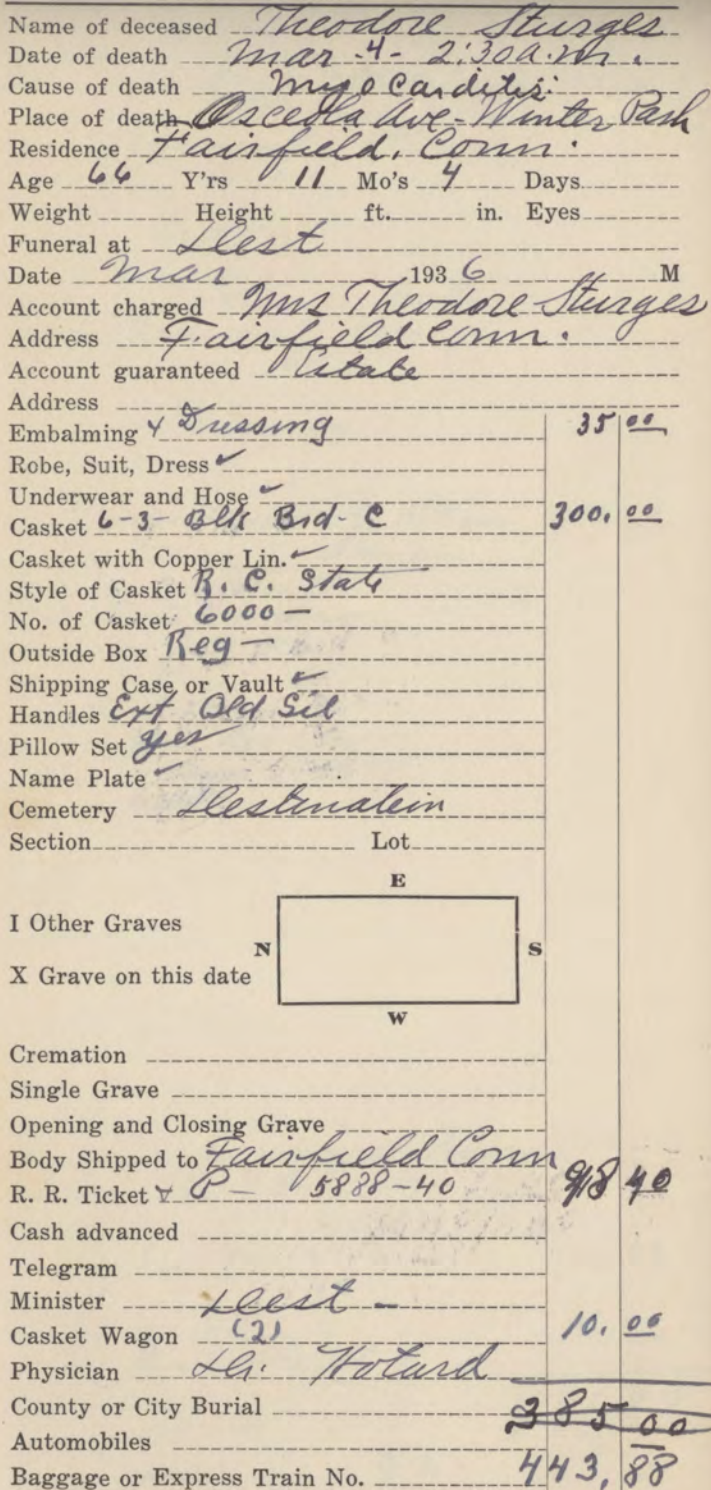 Name of deceased Theodore Sturges
Date of death Mar -4- 2:30 a.m.
Cause of death Myocarditis
Place of death Osceola Ave - Winter Park
Residence Fairfield, Conn.
Age 66 Y'rs 11 Mo's 4 Days
Weight Height ft. in. Eyes
Funeral at Dest
Date Mar 1936 M
Account charged Mrs Theodore Sturges
Address Fairfield Conn.
Account guaranteed Estate
Address
Embalming & Dressing 35 00
Robe, Suit, Dress ✓
Underwear and Hose ✓
Casket 6-3- Blk Brd- C 300. 00
Casket with Copper Lin. ✓
Style of Casket R. C. State
No. of Casket 6000 -
Outside Box Reg -
Shipping Case or Vault ✓
Handles Ext Old Sil
Pillow Set yes
Name Plate ✓
Cemetery Destination
Section Lot
E
I Other Graves
N S
X Grave on this date
W
Cremation
Single Grave
Opening and Closing Grave
Body Shipped to Fairfield Conn
R. R. Ticket & P - 5888-40 98 40
Cash advanced
Telegram
Minister Dest -
Casket Wagon (2) 10. 00
Physician Dr. Hotard
County or City Burial 385 00
Automobiles
Baggage or Express Train No. 443, 88